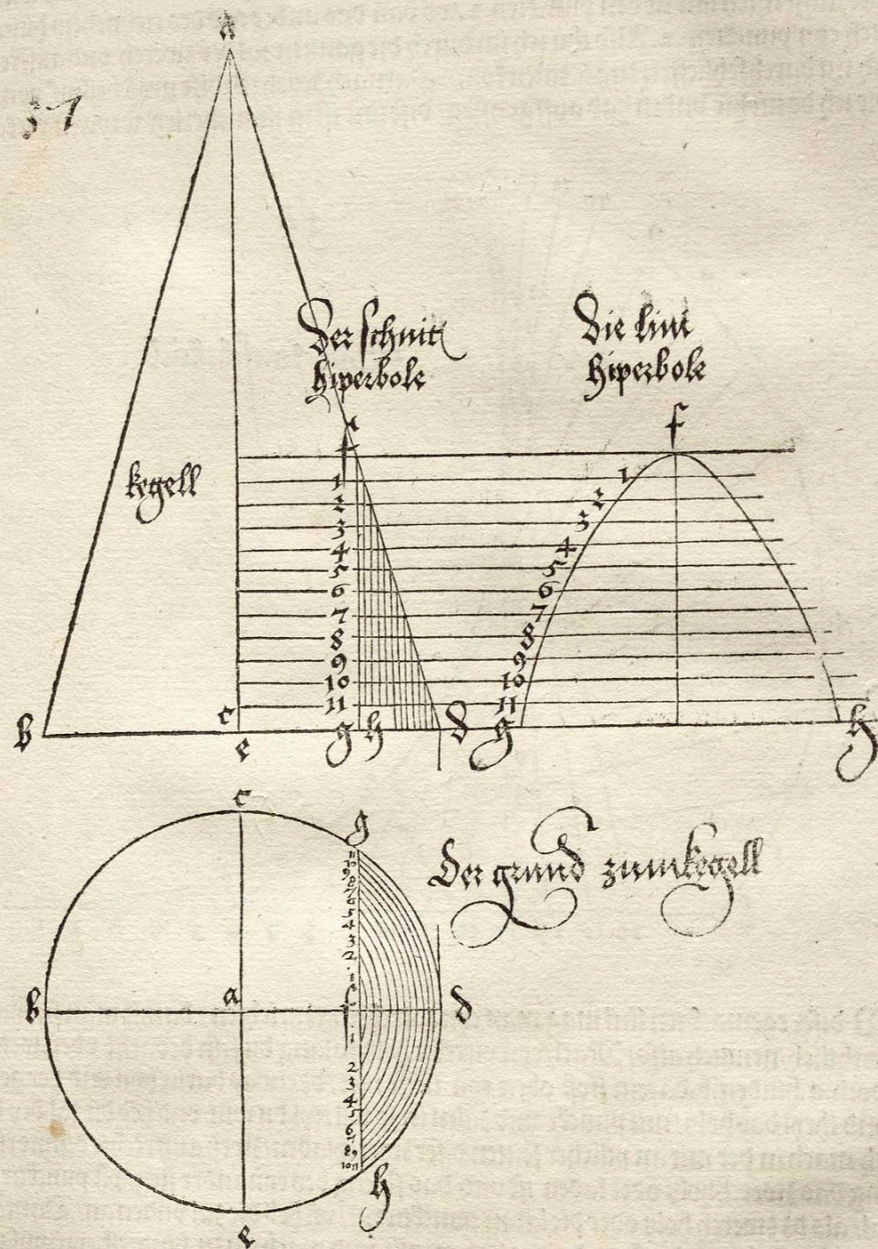 37
a
Der schnit
hiperbole
Die lini
hiperbole
f
f
kegell
1
2
3
4
5
6
7
8
9
10
11
1
2
3
4
5
6
7
8
9
10
11
b
c
e
g h
d
g
h
c
g
Der grund zum kegell
11
10
9
8
7
6
5
4
3
2
1
b
a
f
d
1
2
3
4
5
6
7
8
9
10
11
h
e